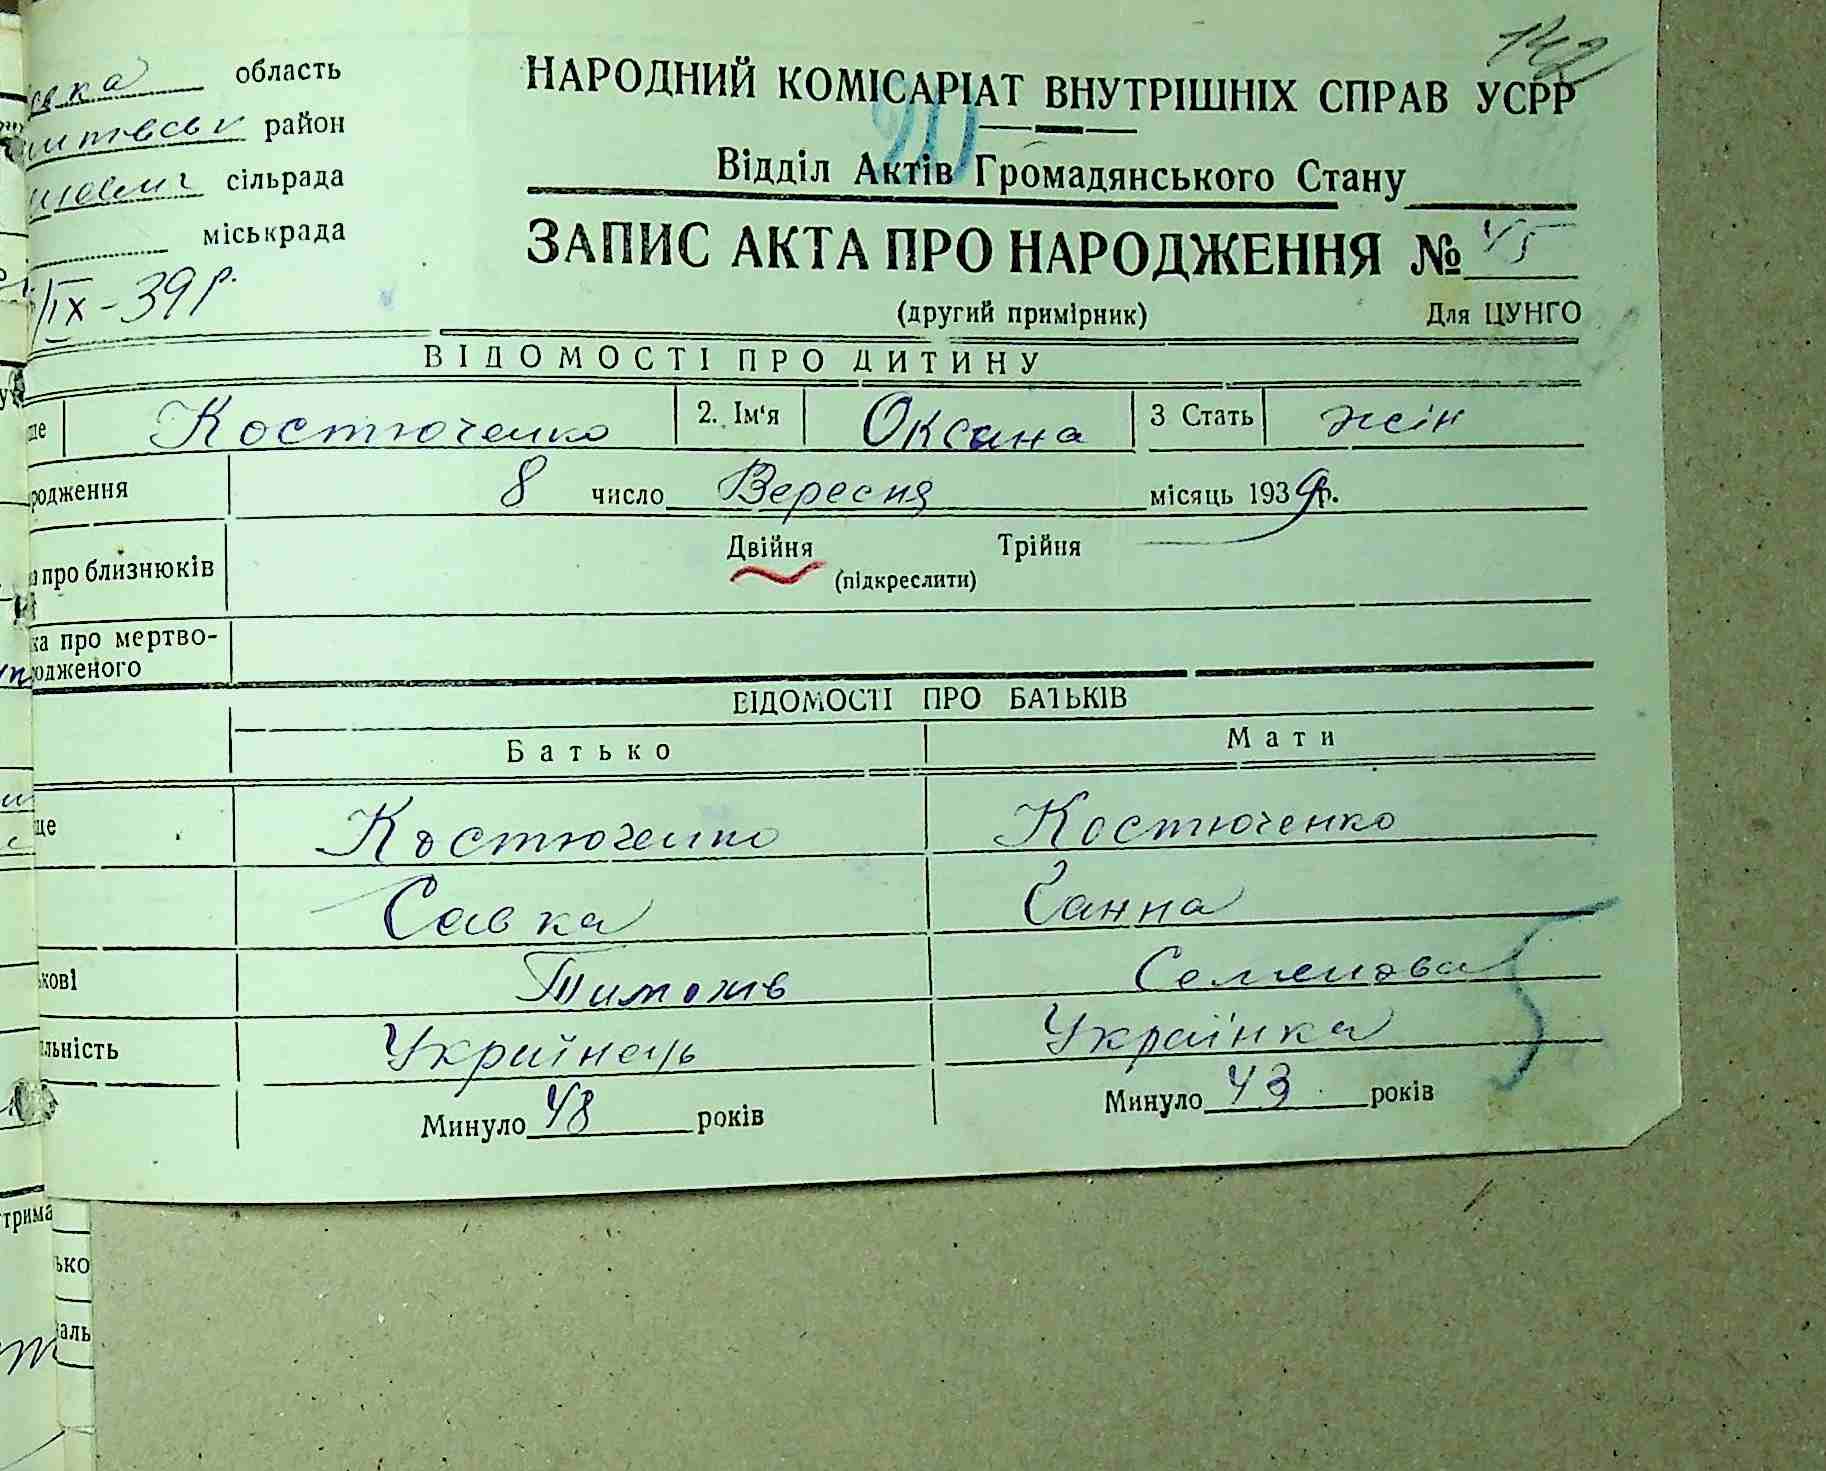 142
область
район
сільрада
міськрада
/IX-39 р.
НАРОДНИЙ КОМІСАРІАТ ВНУТРІШНІХ СПРАВ УСРР
20
Відділ Актів Громадянського Стану
ЗАПИС АКТА ПРО НАРОДЖЕННЯ № 45
(другий примірник) Для ЦУНГО
ВІДОМОСТІ ПРО ДИТИНУ
ще Костюченко 2. Ім'я Оксана 3 Стать жін
родження 8 число Вересня місяць 1939 р.
Двійня Трійня
про близнюків (підкреслити)
ка про мертво-
одженого
ВІДОМОСТІ ПРО БАТЬКІВ
Батько Мати
ще Костюченко Костюченко
Савка Ганна
ькові Тимохів Семенова
льність Українець Українка
Минуло 48 років Минуло 43 років
трима
ько
аль